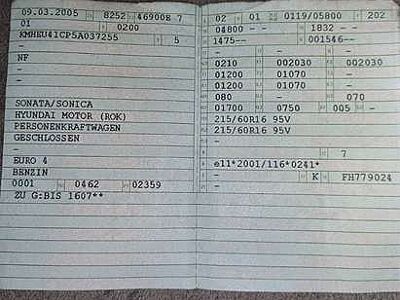 09.03.2005 8252 469008 7
01 0200
KMHEU41CP5A037255 5
-
NF
-
-
SONATA/SONICA
HYUNDAI MOTOR (ROK)
PERSONENKRAFTWAGEN
GESCHLOSSEN
-
EURO 4
BENZIN
0001 0462 02359
ZU G:BIS 1607**
02 01 0119/05800 202
04800 - - 1832 - -
1475-- 001546--
- - -
0210 002030 002030
01200 01070 - -
01200 01070 - -
080 - 070
01700 0750 005 - -
215/60R16 95V
215/60R16 95V
-
- 7
e11*2001/116*0241*
- K FH779024